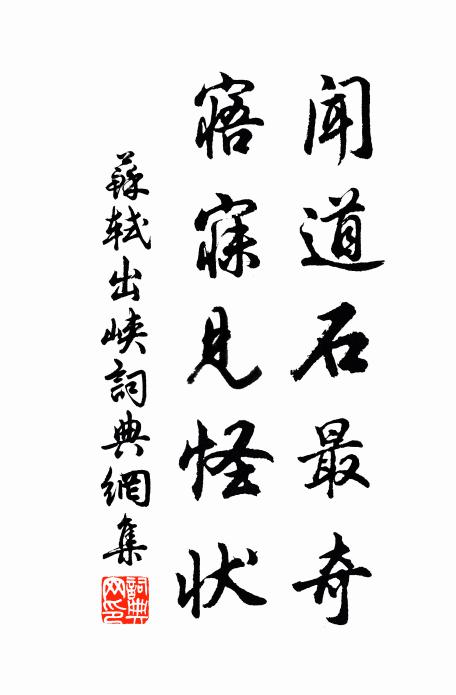 聞道石最奇
寤寐見怪狀
蘇軾出峽詞典網集
詞典網印